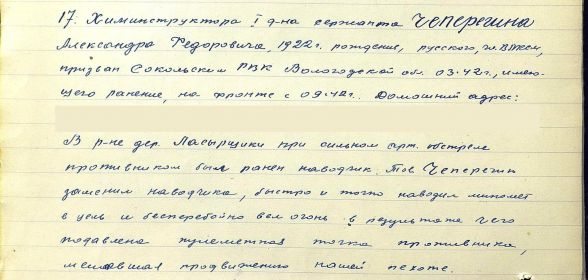 17. Химинструктора I д-на сержанта Чеперегина
Александра Федоровича, 1922 г. рождения, русского, чл. ВЛКСМ,
призван Сокольским РВК Вологодской обл. 03.42 г., имею-
щего ранение, на фронте с 09.42 г. Домашний адрес:
В р-не дер. Пасырщики при сильном арт. обстреле
противником был ранен наводчик. Тов Чеперегин
заменил наводчика, быстро и точно наводил миномет
в цель и бесперебойно вел огонь в результате чего
подавлена пулеметная точка противника,
мешавшая продвижению нашей пехоте.